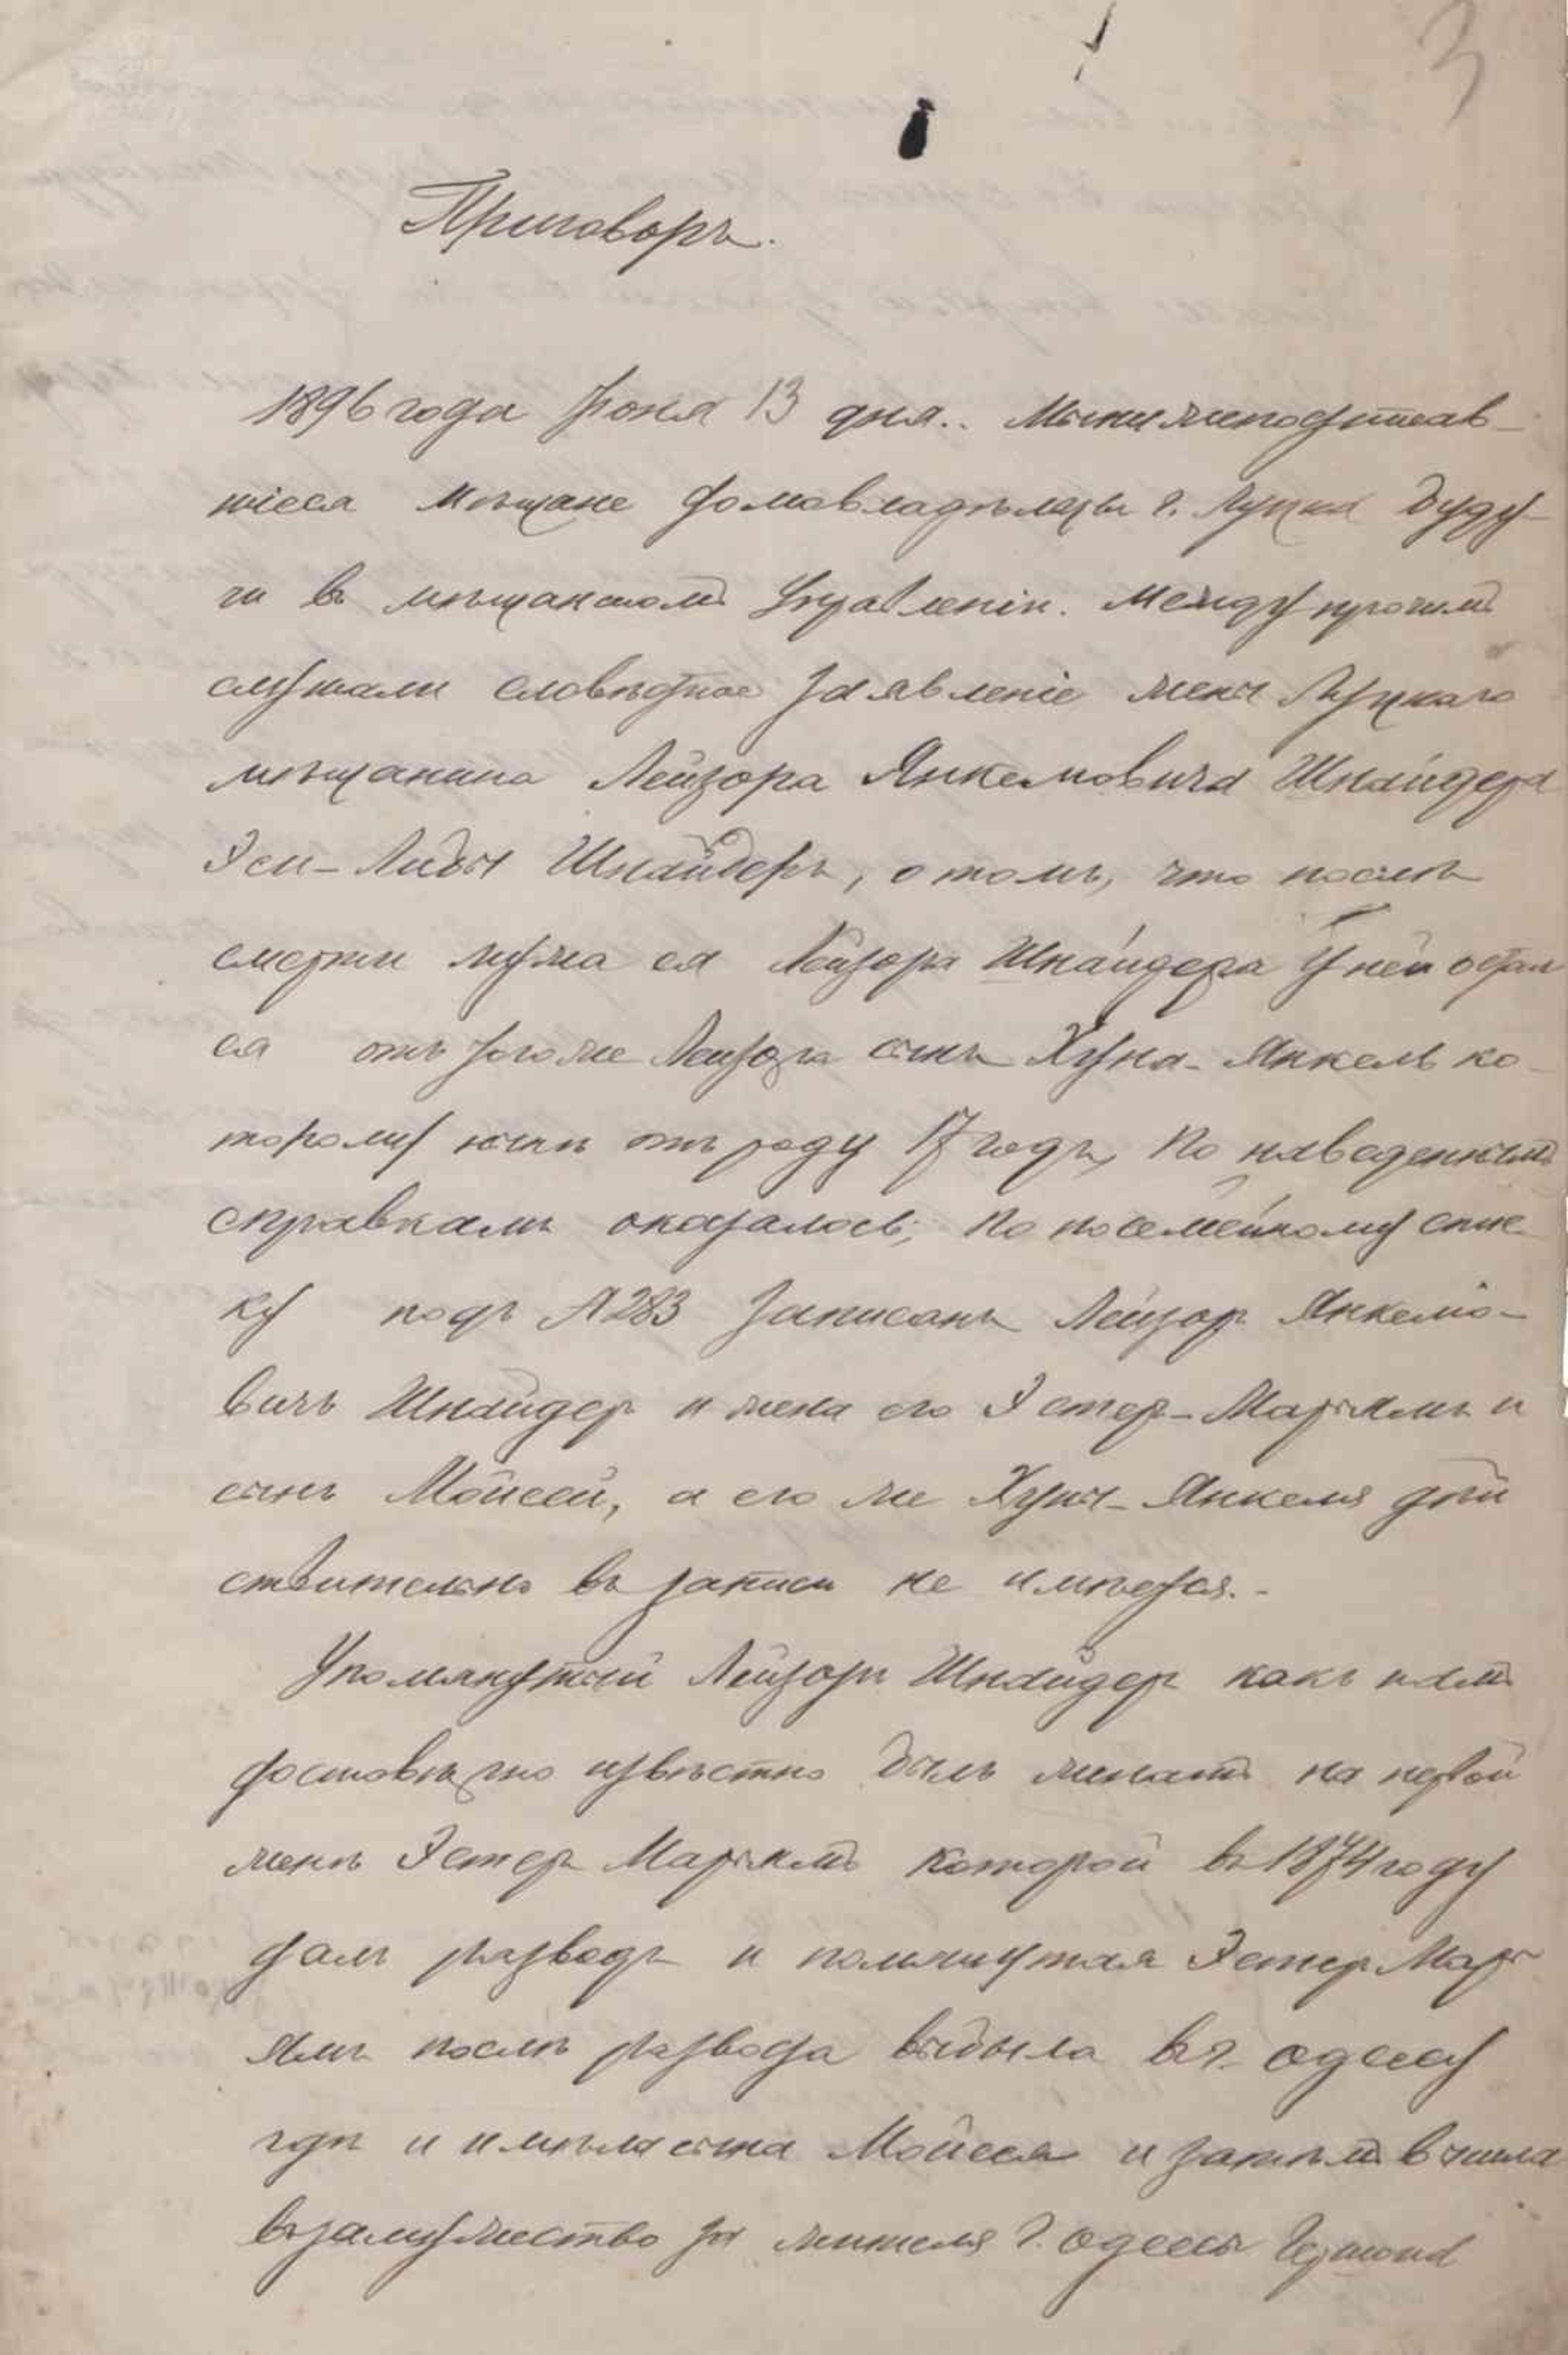 3
Приговоръ.
1896 года Іюня 13 дня.. Мынижеподписав-
шіеся мѣщане домовладѣльцы г. Луцка буду-
чи въ мѣщанскомъ Управленіи. Между прочимъ
слушали словѣсное заявленіе жены Луцкаго
мѣщанина Лейзора Янкелмовича Шнайдера
Эси-Либы Шнайдеръ, о томъ, что послѣ
смерти мужа ея Лейзора Шнайдера у ней остал
ся отъ того же Лейзора сынъ Хуна-Янкель ко-
торому нынѣ отъ роду 17 годъ, По наведеннымъ
справкамъ оказалось; по посемейному спис
ку подъ №283 Записанъ Лейзоръ Янкелио-
вичъ Шнайдеръ и жена его Эстеръ-Марьямъ и
сынъ Мойсей, а его же Хуны-Янкеля дѣй
ствительно въ записи не имѣется.-
Упомянутый Лейзоръ Шнайдеръ какъ намъ
достовѣрно извѣстно былъ женатъ на первой
женѣ Эстеръ Марьямъ которой въ 1874 году
далъ разводъ и помянутая Эстеръ Марь
ямъ послѣ развода выбыла въ г. Одессу
гдѣ и имѣла сына Мойсея и затѣмъ вышла
въ замужество за жителя г. Одессы